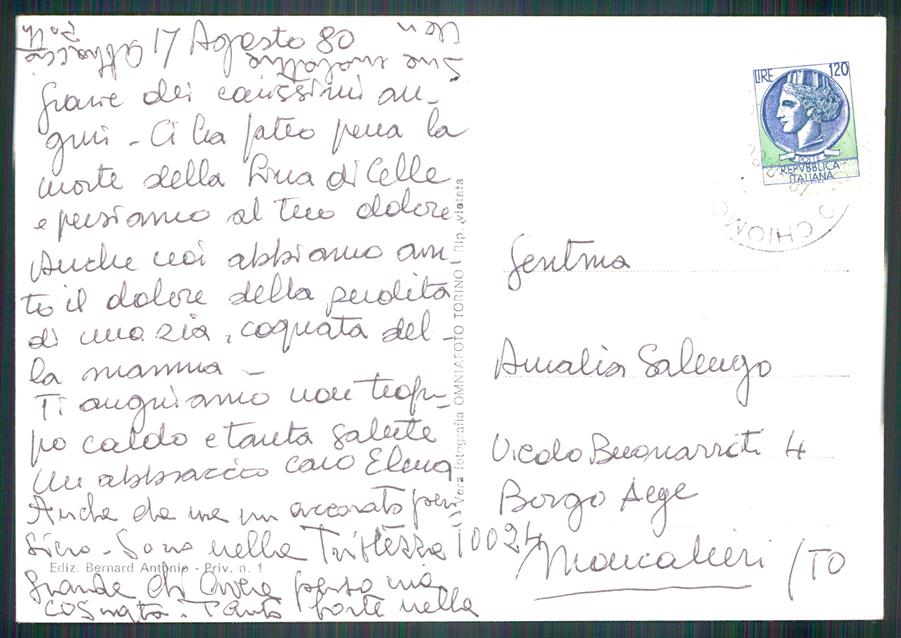 17 Agosto 80
Grazie dei carissimi au-
guri - Ci ha fatto pena la
morte della Lina di Celle
e pensiamo al tuo dolore
Anche noi abbiamo avu-
to il dolore della perdita
di una zia, cognata del-
la mamma -
Ti auguriamo non trop-
po caldo e tanta salute
Un abbraccio caro Elena
Anche da me un accorato pen
siero - Sono nella Tristezza
grande di aver perso mia
cognata. Tanto forte nella
sua malattia
Vera fotografia OMNIAFOTO TORINO Rip. vietata
Ediz. Bernard Antonio - Priv. n. 1
LIRE 120
POSTE
REPVBBLICA
ITALIANA
CHIOMO
Gent.ma
Amalia Salengo
Vicolo Buonarroti 4
Borgo Aege
10024 Moncalieri /TO